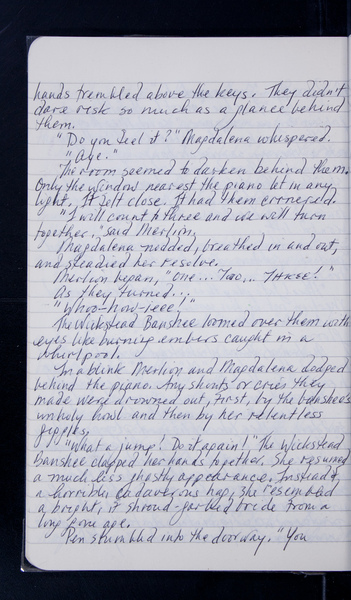 hands trembled above the keys. They didn't
dare risk so much as a glance behind
them.
"Do you feel it?" Magdalena whispered.
"Aye."
The room seemed to darken behind them.
Only the windows nearest the piano let in any
light. It felt close. It had them cornered.
"I will count to three and we will turn
together," said Merlin.
Magdalena nodded, breathed in and out,
and steadied her resolve.
Merlin began, "One... Two... THREE!"
As they turned...
"Whoo-how-ieee!"
The Wickstead Banshee loomed over them with
eyes like burning embers caught in a
whirlpool.
In a blink Merlin and Magdalena dodged
behind the piano. Any shouts or cries they
made were drowned out, first, by the banshee's
unholy howl and then by her relentless
giggles.
"What a jump! Do it again!" The Wickstead
Banshee clapped her hands together. She resumed
a much less ghostly appearance. Instead of
a horrible cadaverous hag, she resembled
a bright, if shroud-garbed bride from a
long gone age.
Pen stumbled into the doorway. "You